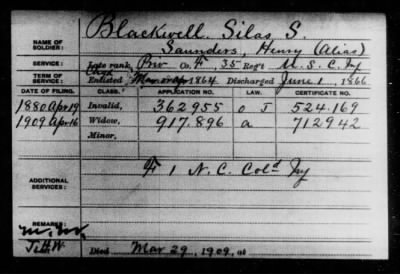 Blackwell. Silas S.
NAME OF SOLDIER: Saunders, Henry (Alias)
SERVICE: Late rank, Priv Co. F, 35 Reg't U. S. C. Inf
TERM OF SERVICE: Enlisted 1864 Discharged June 1, 1866
DATE OF FILING. CLASS. APPLICATION NO. LAW. CERTIFICATE NO.
1880 Apr 19 Invalid, 362955 o J 524.169
1909 Apr 16 Widow, 917.896 a 712942
Minor,
ADDITIONAL SERVICES: F 1 N. C. Cold Inf
REMARKS:
J.H.W. Died Mar 29, 1909, at